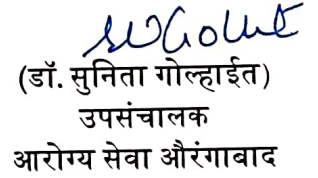 (डॉ. सुनिता गोल्हाईत)
उपसंचालक
आरोग्य सेवा औरंगाबाद